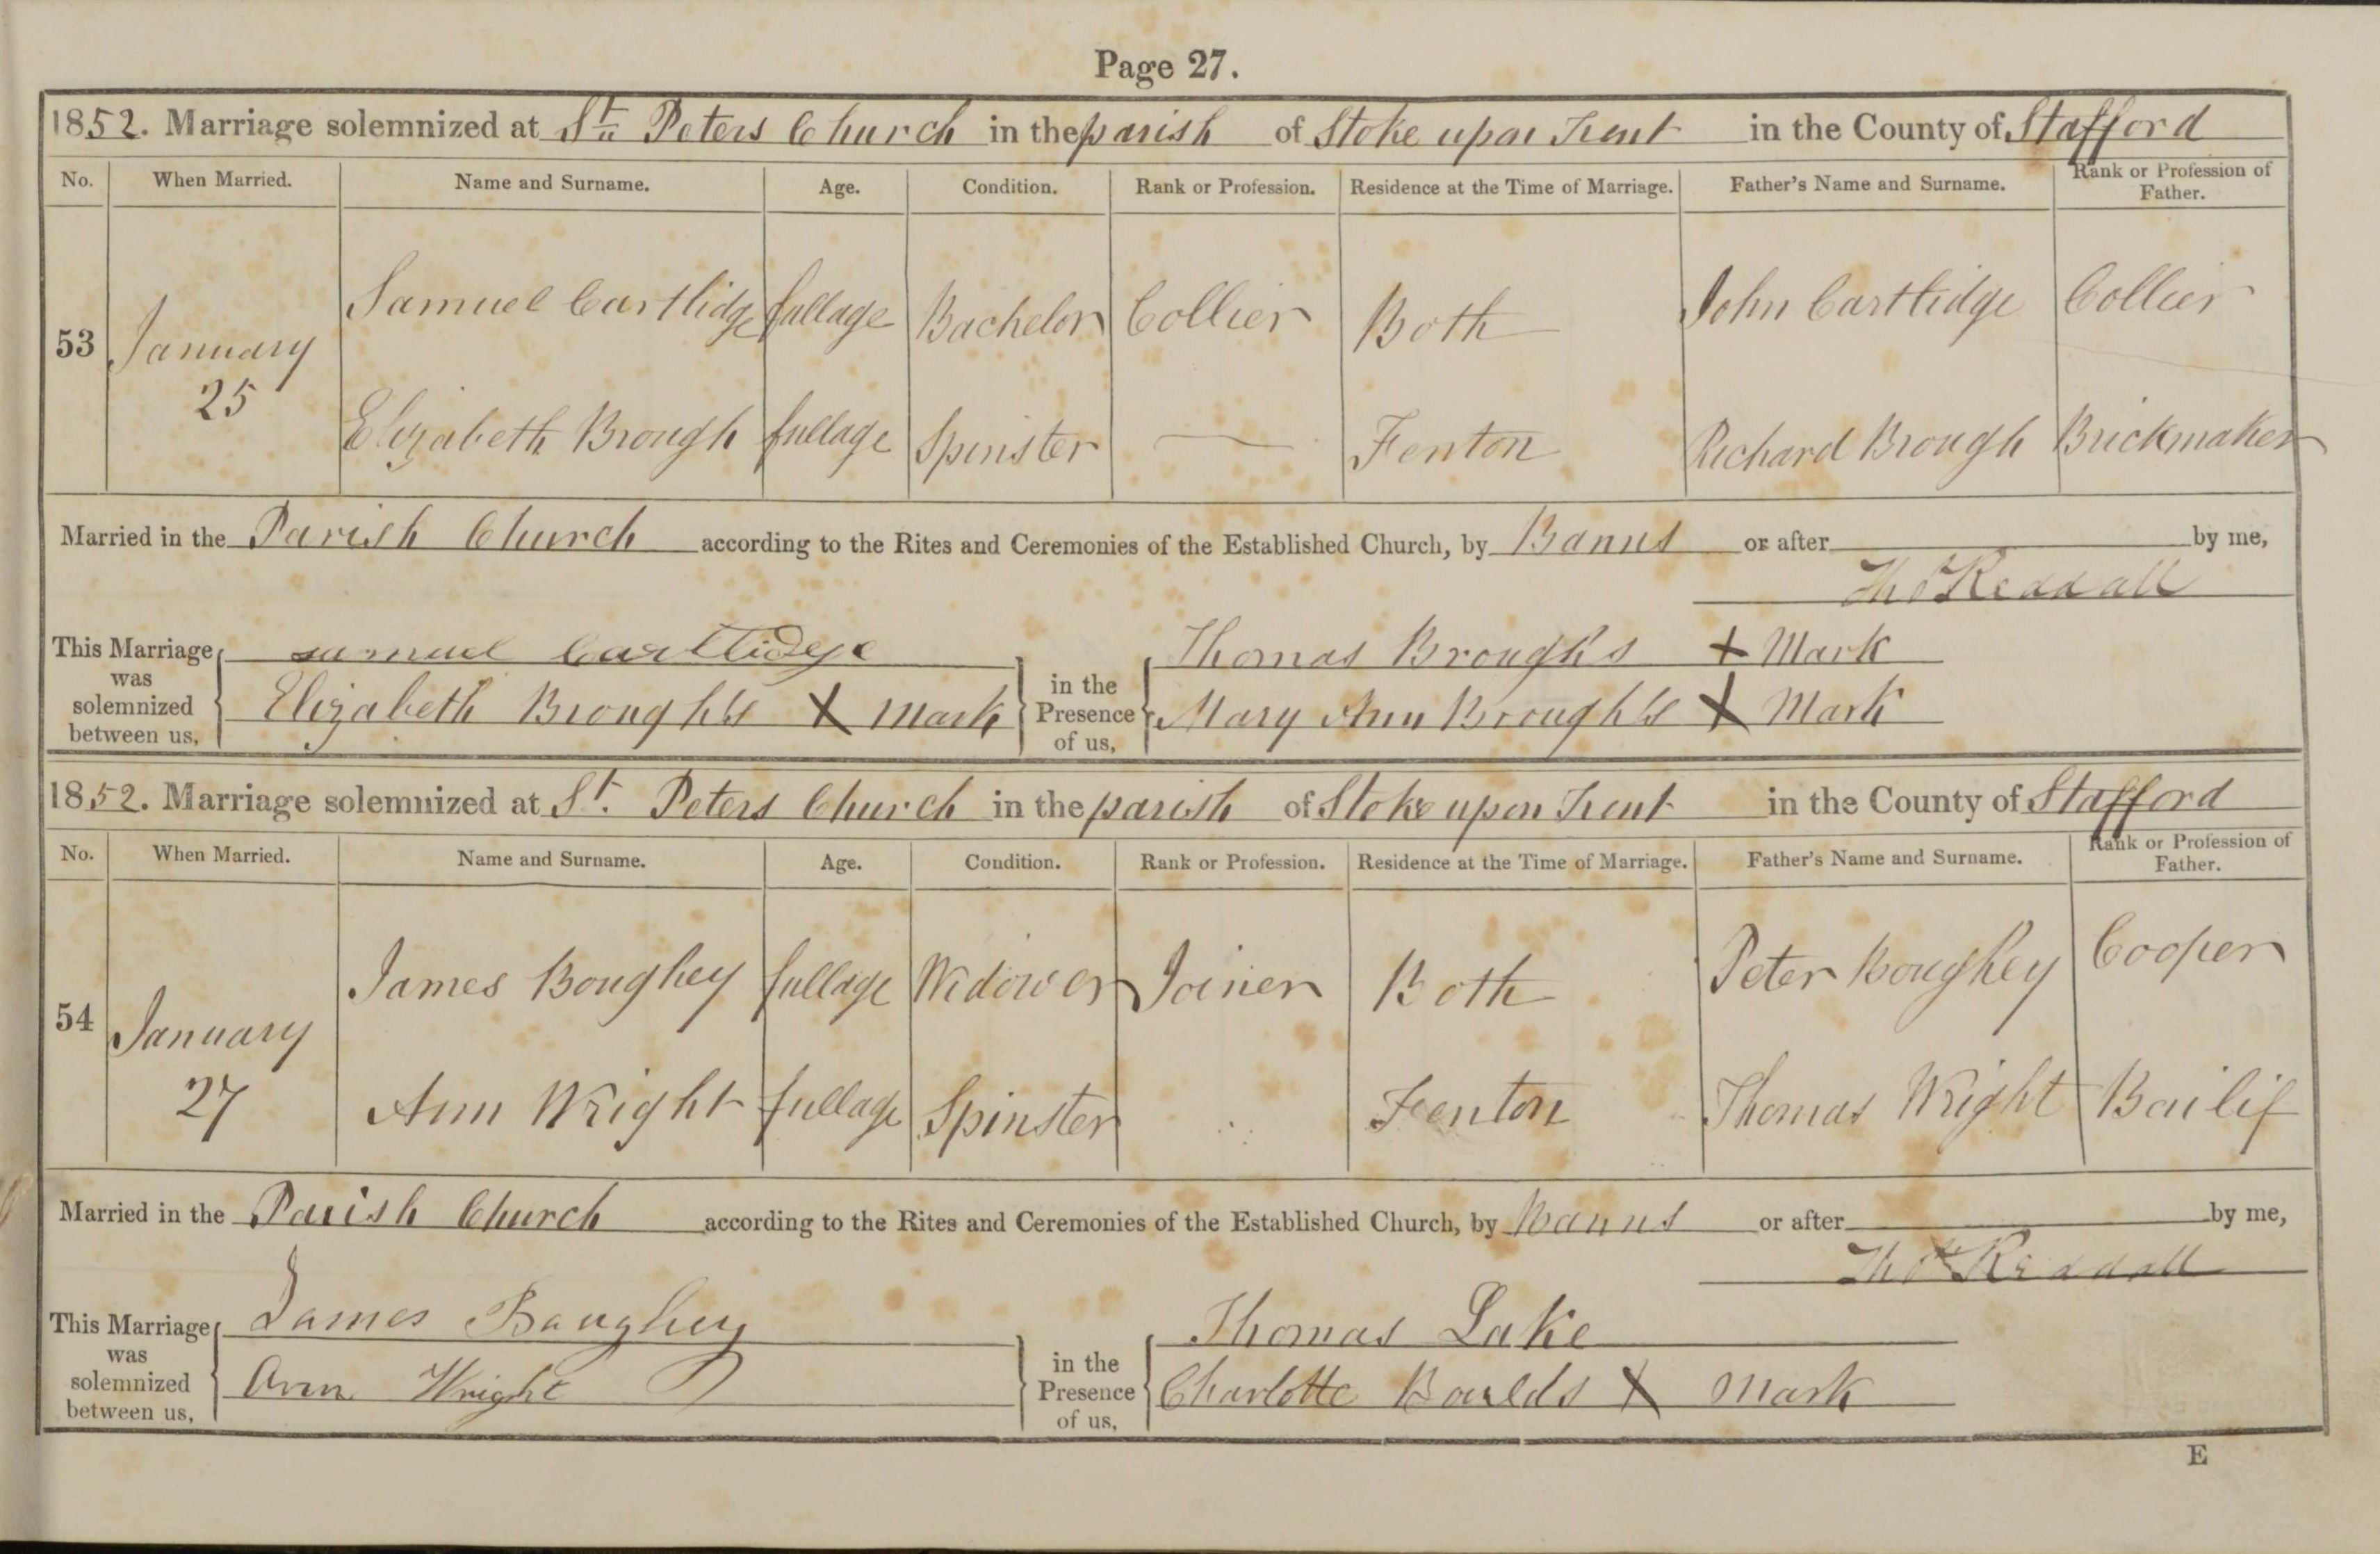 Page 27.
1852. Marriage solemnized at St. Peters Church in the parish of Stoke upon Trent in the County of Stafford
No. When Married. Name and Surname. Age. Condition. Rank or Profession. Residence at the Time of Marriage. Father's Name and Surname. Rank or Profession of Father.
53 January 25 Samuel Cartlidge fullage Bachelor Collier Both John Cartlidge Collier
Elizabeth Brough fullage Spinster — Fenton Richard Brough Brickmaker
Married in the Parish Church according to the Rites and Ceremonies of the Established Church, by Banns or after by me,
Thos Reddall
This Marriage was solemnized between us, Samuel Cartlidge in the Presence of us, Thomas Brough's X Mark
Elizabeth Brough's X Mark Mary Ann Brough's X Mark
1852. Marriage solemnized at St. Peters Church in the parish of Stoke upon Trent in the County of Stafford
No. When Married. Name and Surname. Age. Condition. Rank or Profession. Residence at the Time of Marriage. Father's Name and Surname. Rank or Profession of Father.
54 January 27 James Boughey fullage Widower Joiner Both Peter Boughey Cooper
Ann Wright fullage Spinster Fenton Thomas Wright Bailif
Married in the Parish Church according to the Rites and Ceremonies of the Established Church, by Banns or after by me,
Thos Reddall
This Marriage was solemnized between us, James Boughey in the Presence of us, Thomas Lake
Ann Wright Charlotte X Mark
E